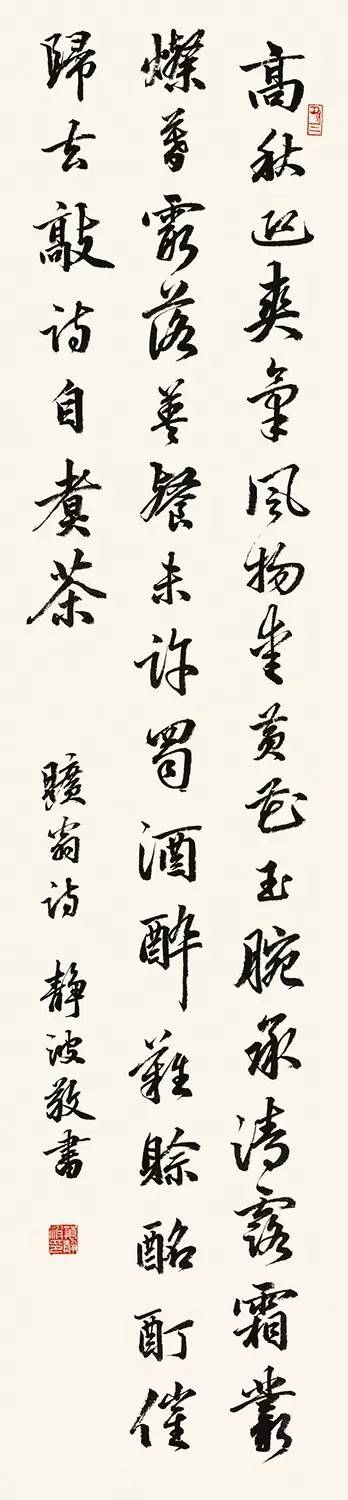 高秋迎爽氣風物愛黃花玉腕承清露霜叢
燦暮霞落英餐未許蜀酒醉難賒酩酊催
歸去敲詩自煮茶
曠翁詩 靜波敬書